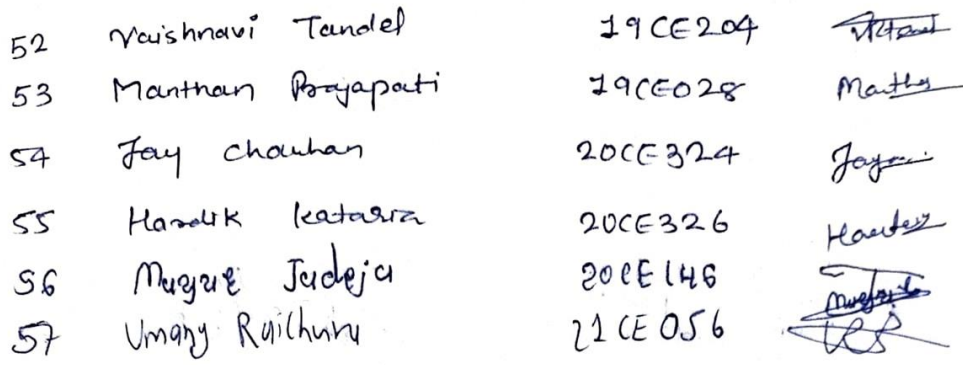 52 Vaishnavi Tandel 19CE204
53 Manthan Prajapati 19CE028
54 Jay Chauhan 20CE324
55 Hardik Kataria 20CE326
56 Mayur Jadeja 20CE146
57 Umang Raichura 21CE056